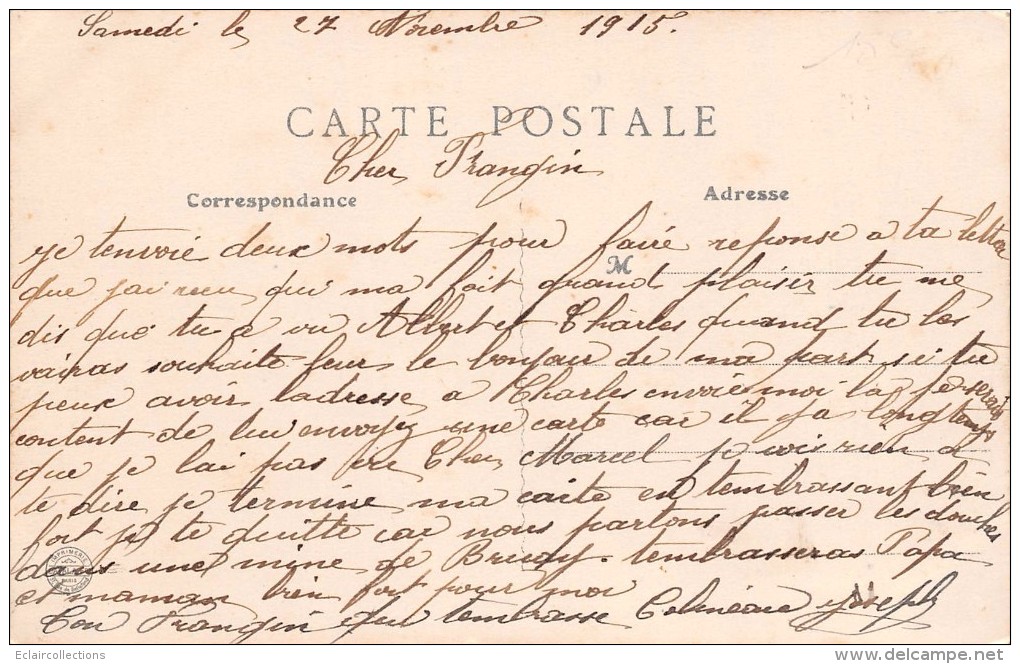 Samedi le 27 Novembre 1915.
CARTE POSTALE
Cher Frangin
Correspondance
Adresse
je tenvoie deux mots pour faire reponse a ta lettre
M
que jai recu qui ma fait grand plaisir tu me
dis que tu a vu Albert et Charles quand tu les
vairas souhaite leur le bonjour de ma part si tu
peux avoir ladresse a Charles envoie moi la je serais
content de lui envoyez une carte car il y a longtemps
que je lai pas vu Cher Marcel je vois rien a
te dire je termine ma carte en tembrassant bien
fort je te quitte car nous partons passer les douches
dans une mine de Bruay. tembrasseras Papa
et maman bien fort pour moi
Ton Frangin qui tembrasse Joseph
IMPRIMERIE
PARIS
Eclaircollections
delcampe.net